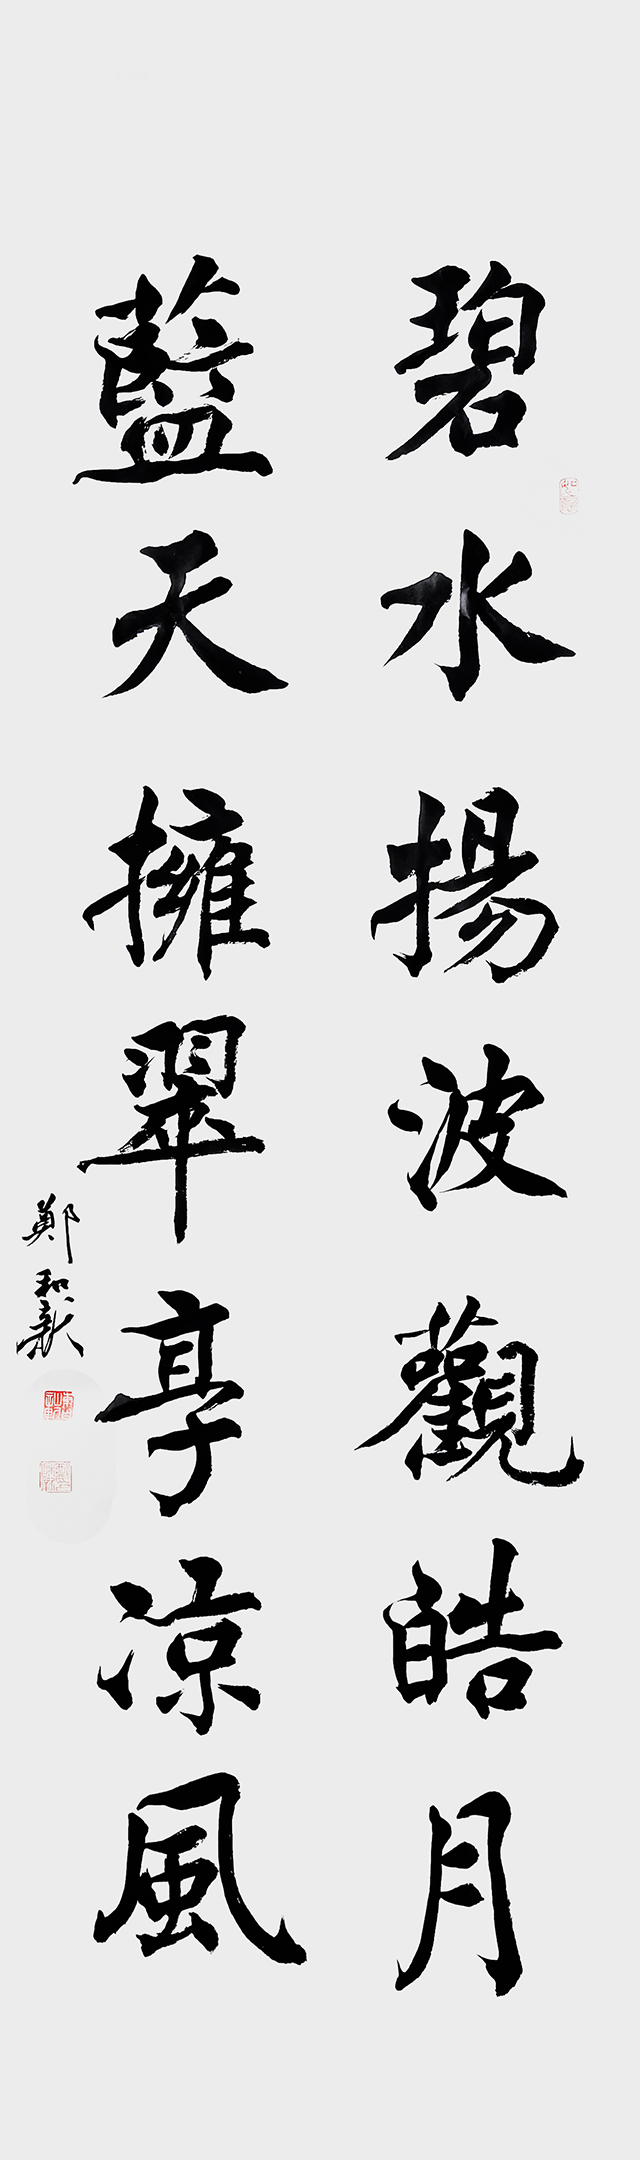 碧水揚波觀皓月
藍天擁翠享凉風
鄭和新